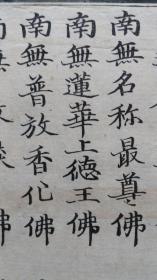 南無名称最尊佛
南無蓮華上徳王佛
南無普放香化佛